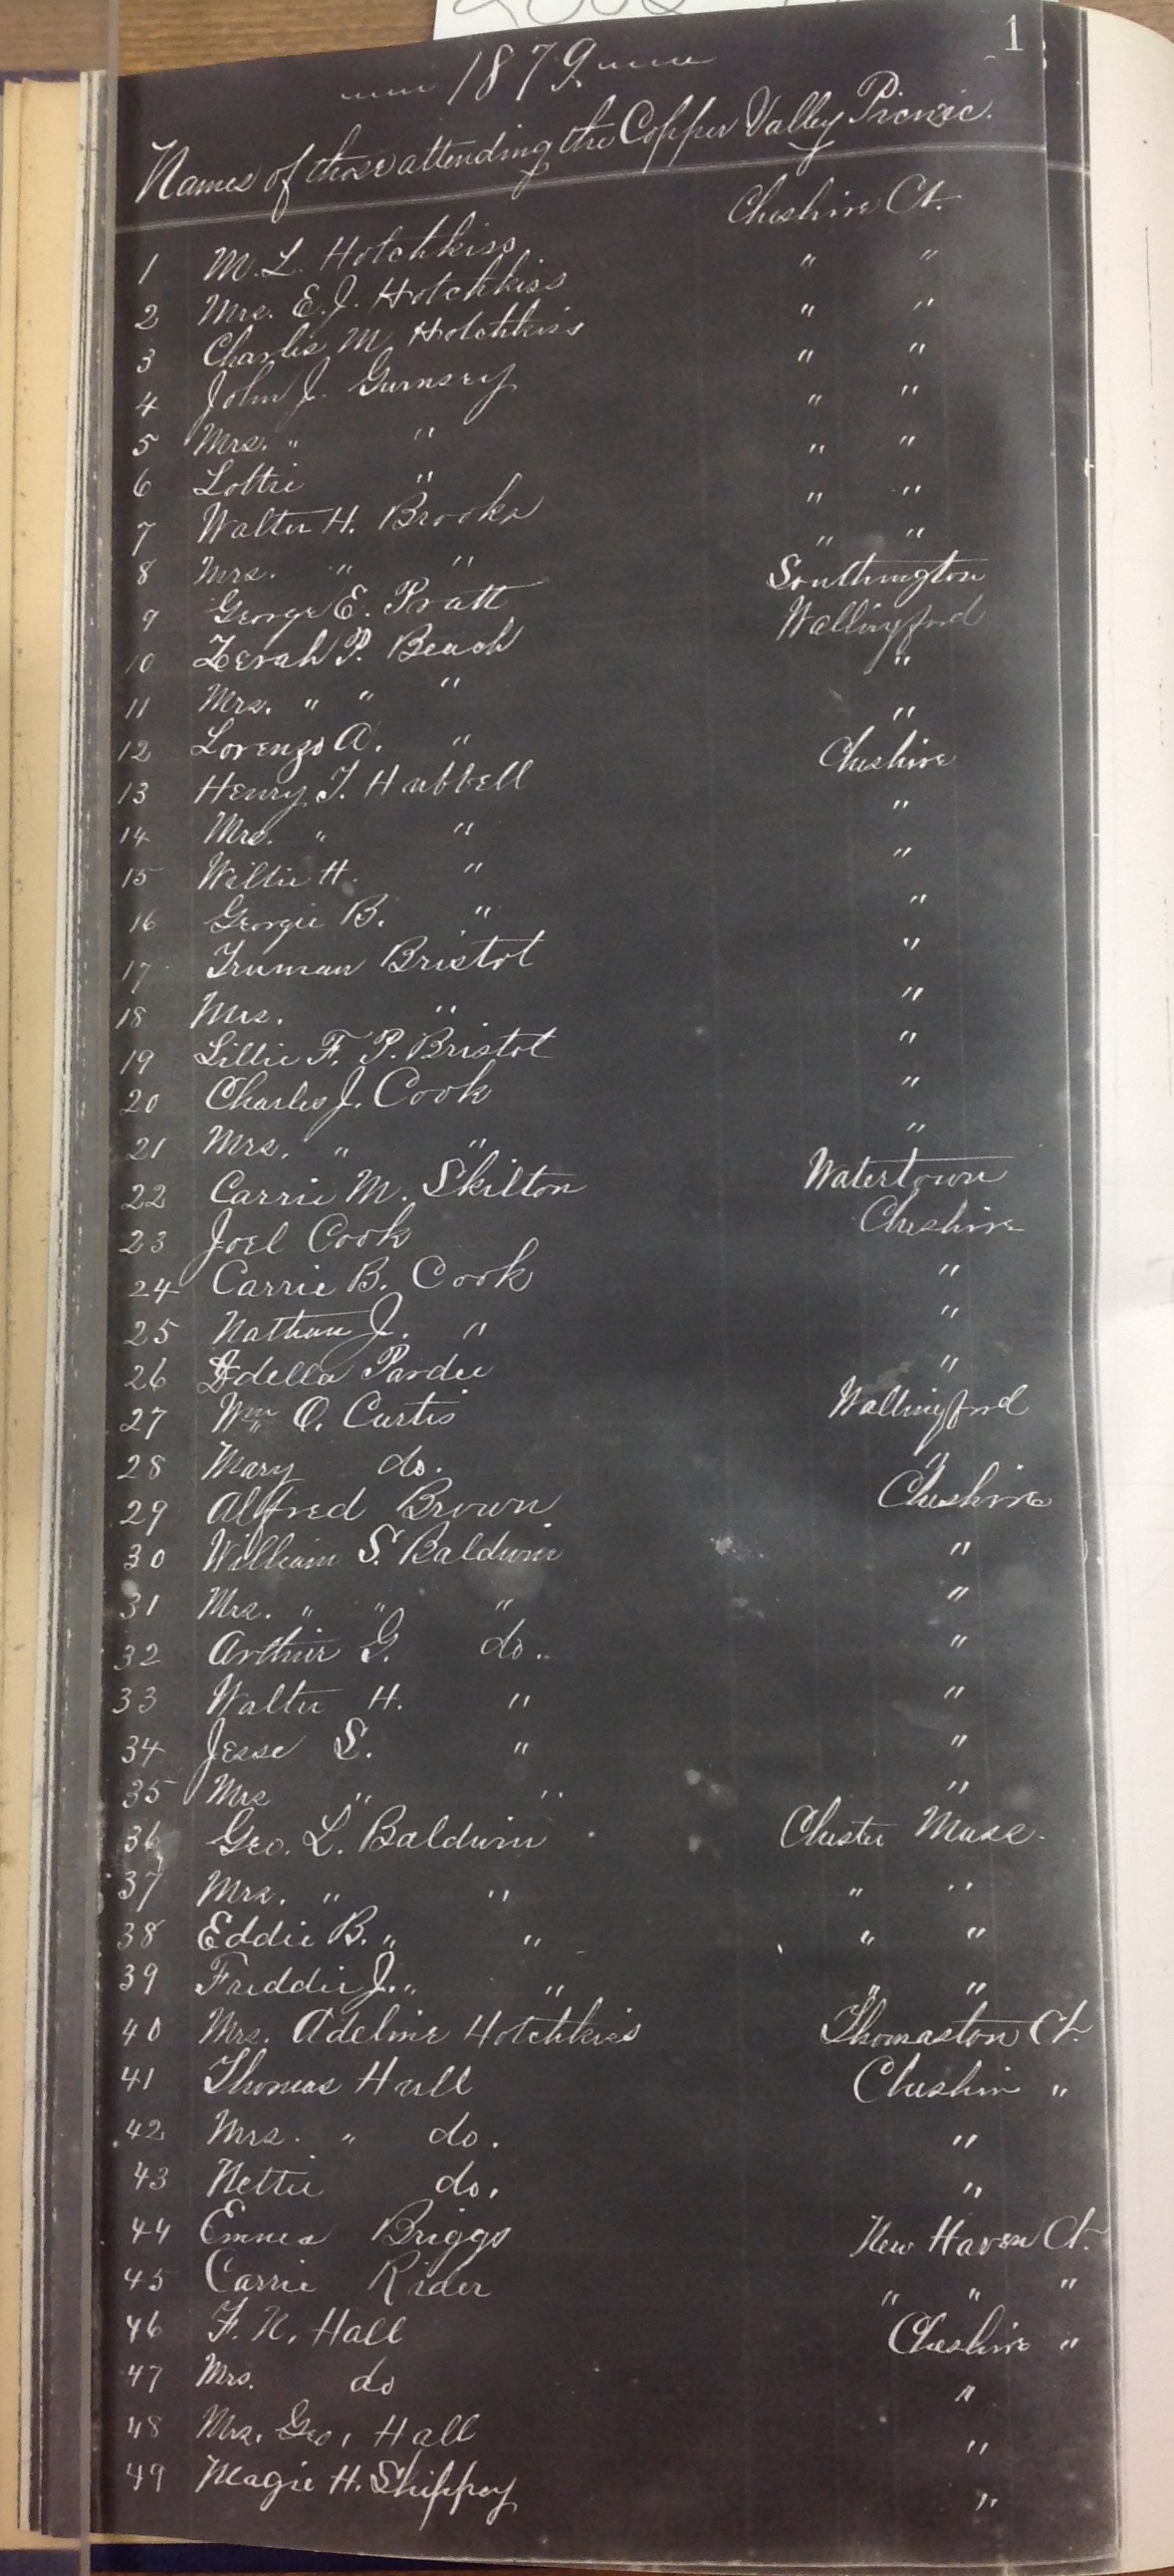 1
1879.
Names of those attending the Copper Valley Picnic.
Cheshire Ct.
1 M. L. Hotchkiss " "
2 Mrs. E. J. Hotchkiss " "
3 Charlie M. Hotchkiss " "
4 John J. Gurnsey " "
5 Mrs. " " " "
6 Lottie " " "
7 Walter H. Brooks " "
8 Mrs. " " Southington
9 George E. Pratt Wallingford
10 Zerah P. Beach "
11 Mrs. " " " "
12 Lorenzo A. " Cheshire
13 Henry T. Hubbell "
14 Mrs. " " "
15 Willie H. " "
16 Georgie B. " "
17 Truman Bristol "
18 Mrs. " "
19 Lillie F. P. Bristol "
20 Charles J. Cook "
21 Mrs. " " Watertown
22 Carrie M. Skilton Cheshire
23 Joel Cook "
24 Carrie B. Cook "
25 Nathan J. " "
26 Adella Pardee Wallingford
27 Wm O. Curtis "
28 Mary do. Cheshire
29 Alfred Brown "
30 William S. Baldwin "
31 Mrs. " " " "
32 Arthur G. do. "
33 Walter H. " "
34 Jesse S. " "
35 Mrs " " "
36 Geo. L. Baldwin Chester Mass.
37 Mrs. " " " "
38 Eddie B. " " " "
39 Freddie J. " " " "
40 Mrs. Adeline Hotchkiss Thomaston Ct.
41 Thomas Hull Cheshire "
42 Mrs. " do. "
43 Nettie do. "
44 Emma Briggs New Haven Ct.
45 Carrie Rider " " "
46 F. N. Hall Cheshire "
47 Mrs. do "
48 Mrs. Geo. Hall "
49 Magie H. Shippey "